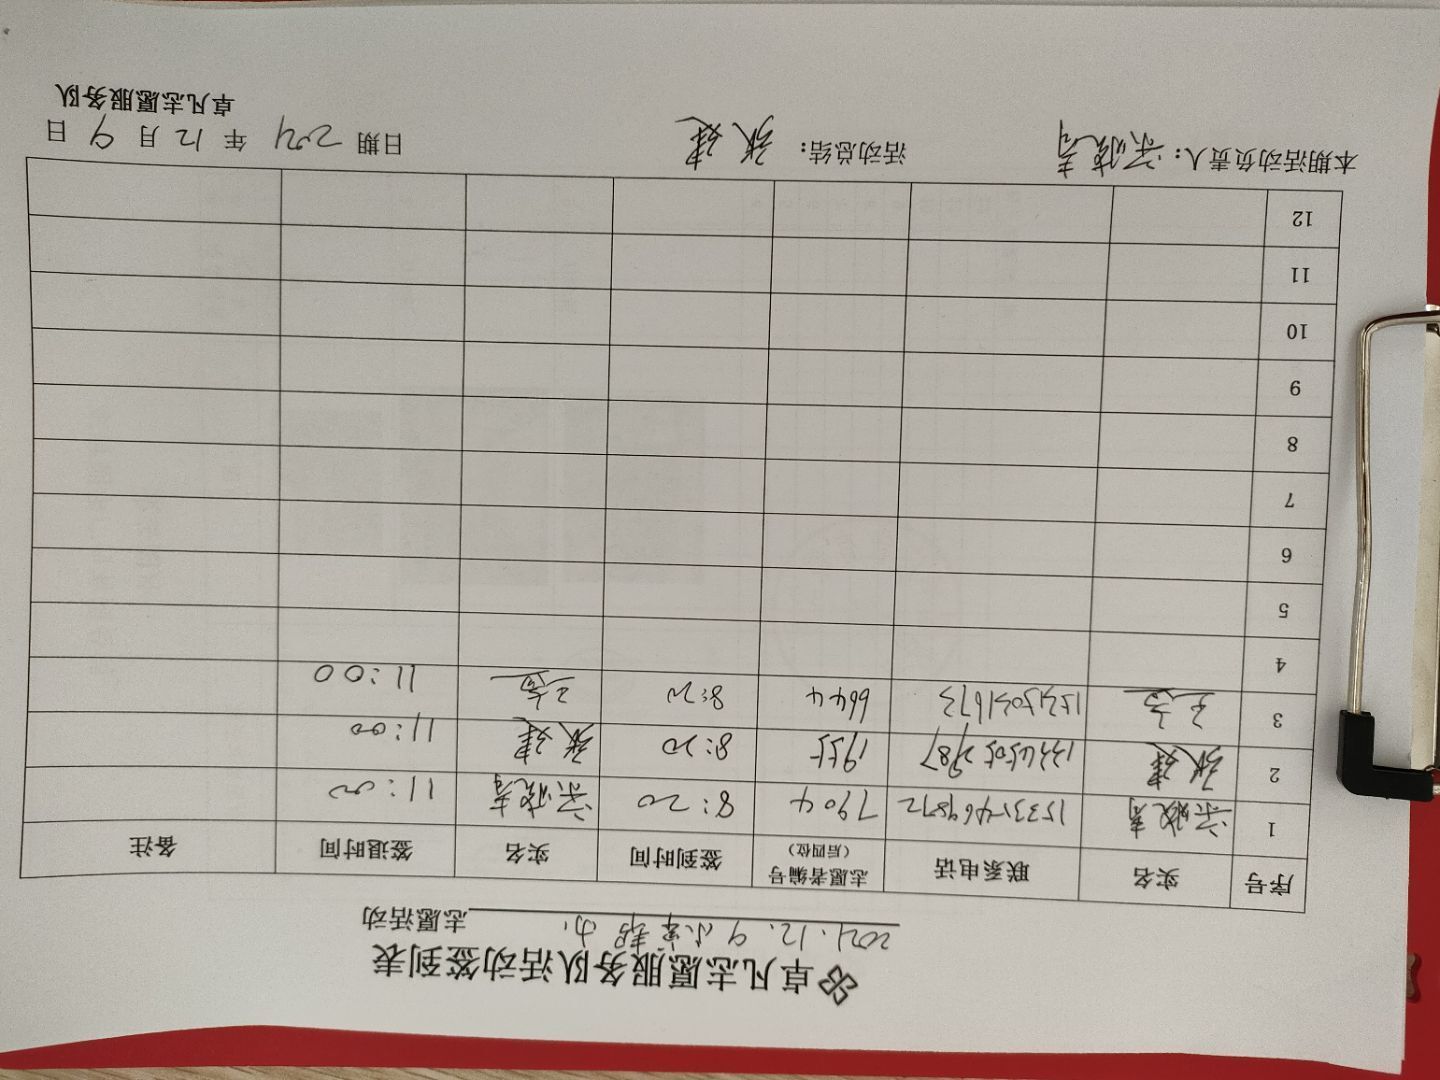 卓凡志愿服务队活动签到表
2021.12.9 小寨帮办 志愿活动
序号 实名 联系电话 志愿者编号（后四位） 签到时间 实名 签退时间 备注
1 7904 8:20 11:00
2 张建 1955 8:20 张建 11:00
3 6644 8:20 11:00
4
5
6
7
8
9
10
11
12
本期活动负责人： 活动总结：张建 日期 2021 年 12 月 9 日
卓凡志愿服务队